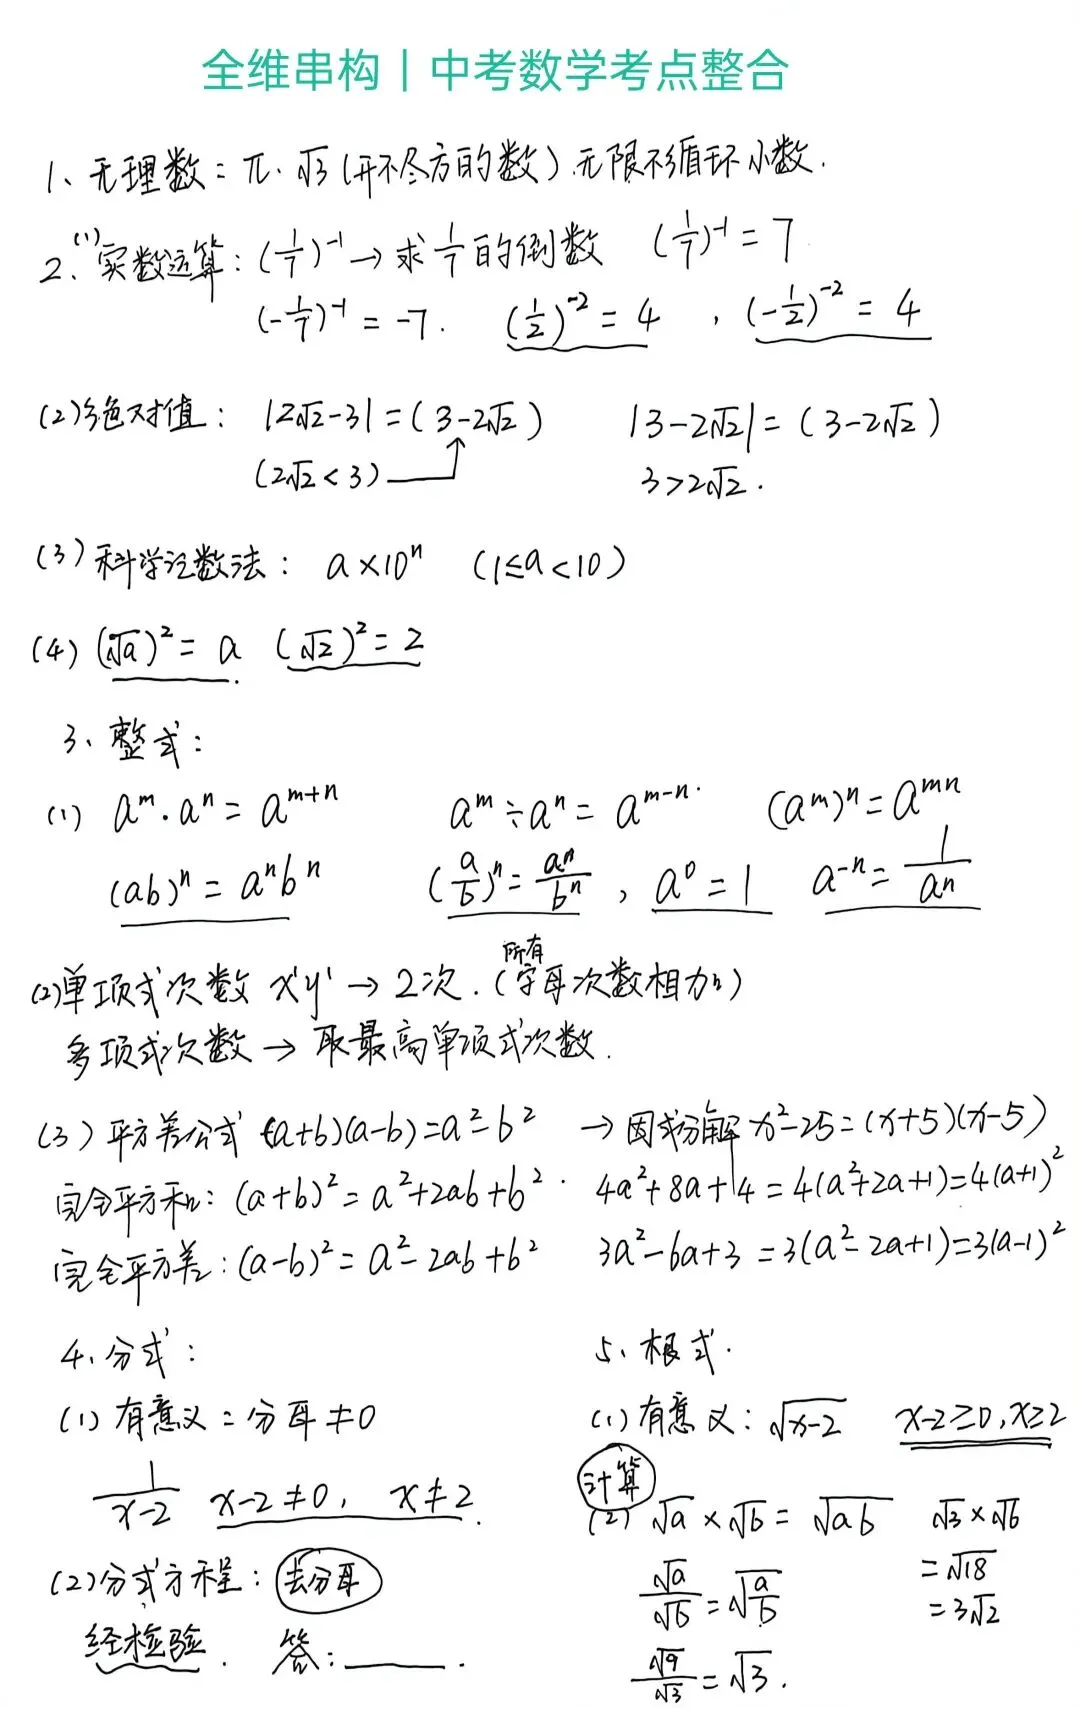 全维串构｜中考数学考点整合
1、无理数：π. √3 (开不尽方的数) .无限不循环小数.
2、(1)实数运算：(1/7)⁻¹ → 求 1/7 的倒数 (1/7)⁻¹ = 7
(-1/7)⁻¹ = -7. (1/2)⁻² = 4 , (-1/2)⁻² = 4
(2)绝对值： |2√2-3| = ( 3-2√2 ) |3-2√2| = ( 3-2√2 )
(2√2 < 3) 3>2√2.
(3) 科学记数法： a×10ⁿ (1≤a<10)
(4) (√a)² = a (√2)² = 2
3、整式：
(1) aᵐ·aⁿ = aᵐ⁺ⁿ aᵐ÷aⁿ = aᵐ⁻ⁿ (aᵐ)ⁿ = aᵐⁿ
(ab)ⁿ = aⁿbⁿ (a/b)ⁿ = aⁿ/bⁿ , a⁰ = 1 a⁻ⁿ = 1/aⁿ
(2)单项式次数 x¹y¹ → 2次. (所有字母次数相加)
多项式次数 → 取最高单项式次数.
(3) 平方差公式 (a+b)(a-b)=a²-b² → 因式分解 x²-25=(x+5)(x-5)
完全平方和：(a+b)² = a²+2ab+b² . 4a²+8a+4 = 4(a²+2a+1)=4(a+1)²
完全平方差：(a-b)² = a²-2ab+b² 3a²-6a+3 = 3(a²-2a+1)=3(a-1)²
4、分式：
(1) 有意义：分母≠0
1/(x-2) x-2≠0, x≠2.
(2)分式方程：去分母
经检验. 答：____.
5、根式.
(1) 有意义：√(x-2) x-2≥0,x≥2
计算
(2) √a × √b = √ab √3×√6
=√18
√a/√b = √(a/b) =3√2
√9/√3 = √3.